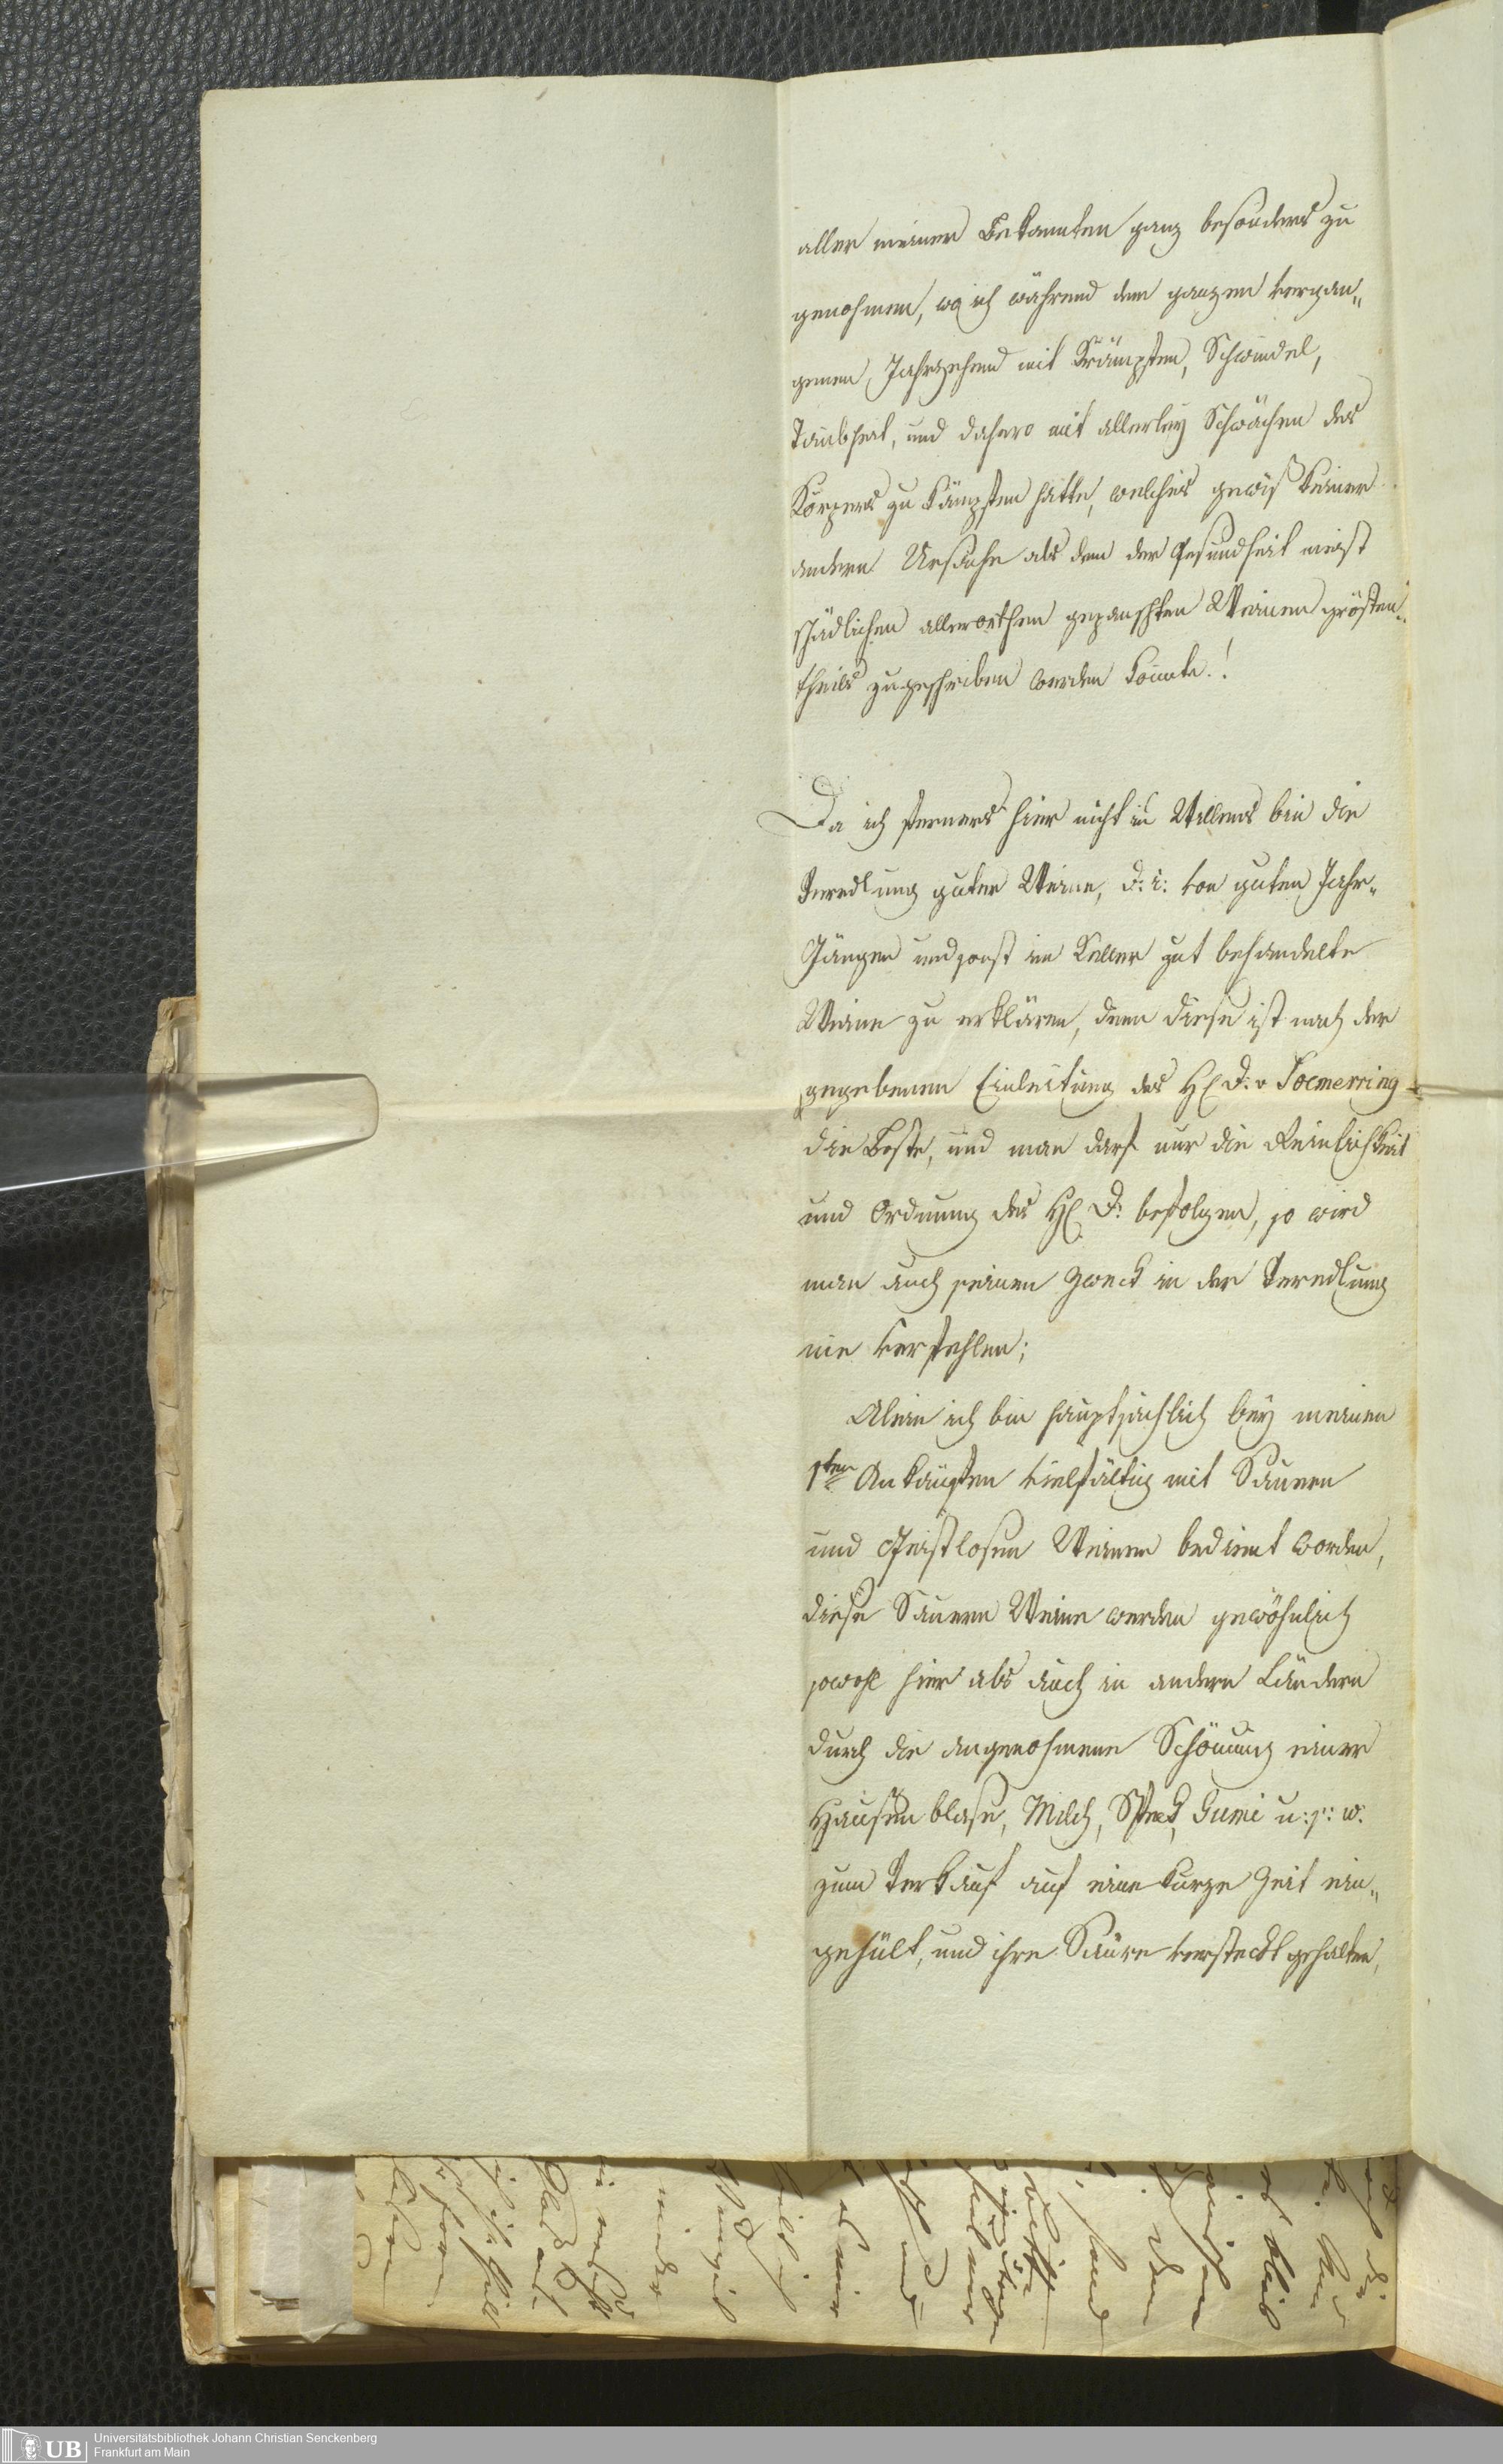 aller meiner Bekannten ganz besonders zu
genohmen, wo ich während dem ganzen vergan„
genen Jahrzehend mit Krämpfen, Schwindel,
Taubheit, und dahero mit allerley Schwächen des
Körpers zu kämpfen hatte, welches gewiß keiner
andern Ursache als dem der Gesundheit meist
schädlichen allerorthen gepanschten Weinen grösten„
theils zugeschrieben werden konnte!
Da ich ferners hier nicht in Willens bin die
Veredlung guter Weine, d: i: von guten Jahr„
Gängen und sonst im Keller gut behandelte
Weine zu erklären, denn diese ist nach der
gegebenen Einleitung des H D: v Soemerring
die Beste, und man darf nur die Reinlichkeit
und Ordnung des H D: befolgen, so wird
man auch seinen Zweck in der Veredlung
nie verfehlen;
Alein ich bin hauptsächlich bey meinen
1ten Ankäufen vielfältig mit Sauern
und Geistlosen Weinen bedient worden,
diese Sauern Weine werden gewöhnlich
sowohl hier als auch in andern Ländern
durch die angenohmene Schönung einer
Hausenblase, Milch, Speck, Gumi u: s: w:
zum Verkauf auf eine kurze Zeit ein„
gehült, und ihre Säure versteckt gehalten,
UB Universitätsbibliothek Johann Christian Senckenberg
Frankfurt am Main